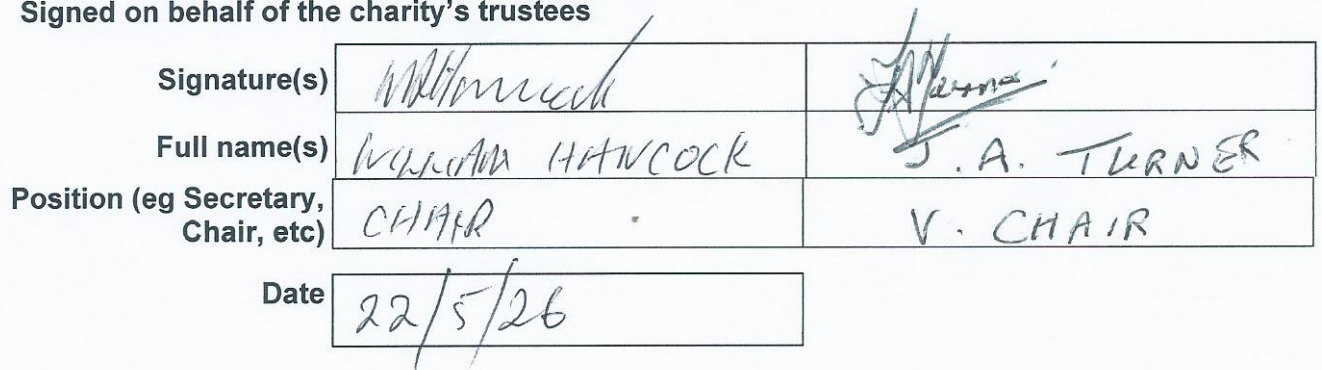 Signed on behalf of the charity's trustees
Signature(s)
Full name(s) WILLIAM HANCOCK J. A. TURNER
Position (eg Secretary,
Chair, etc) CHAIR V. CHAIR
Date 22/5/26